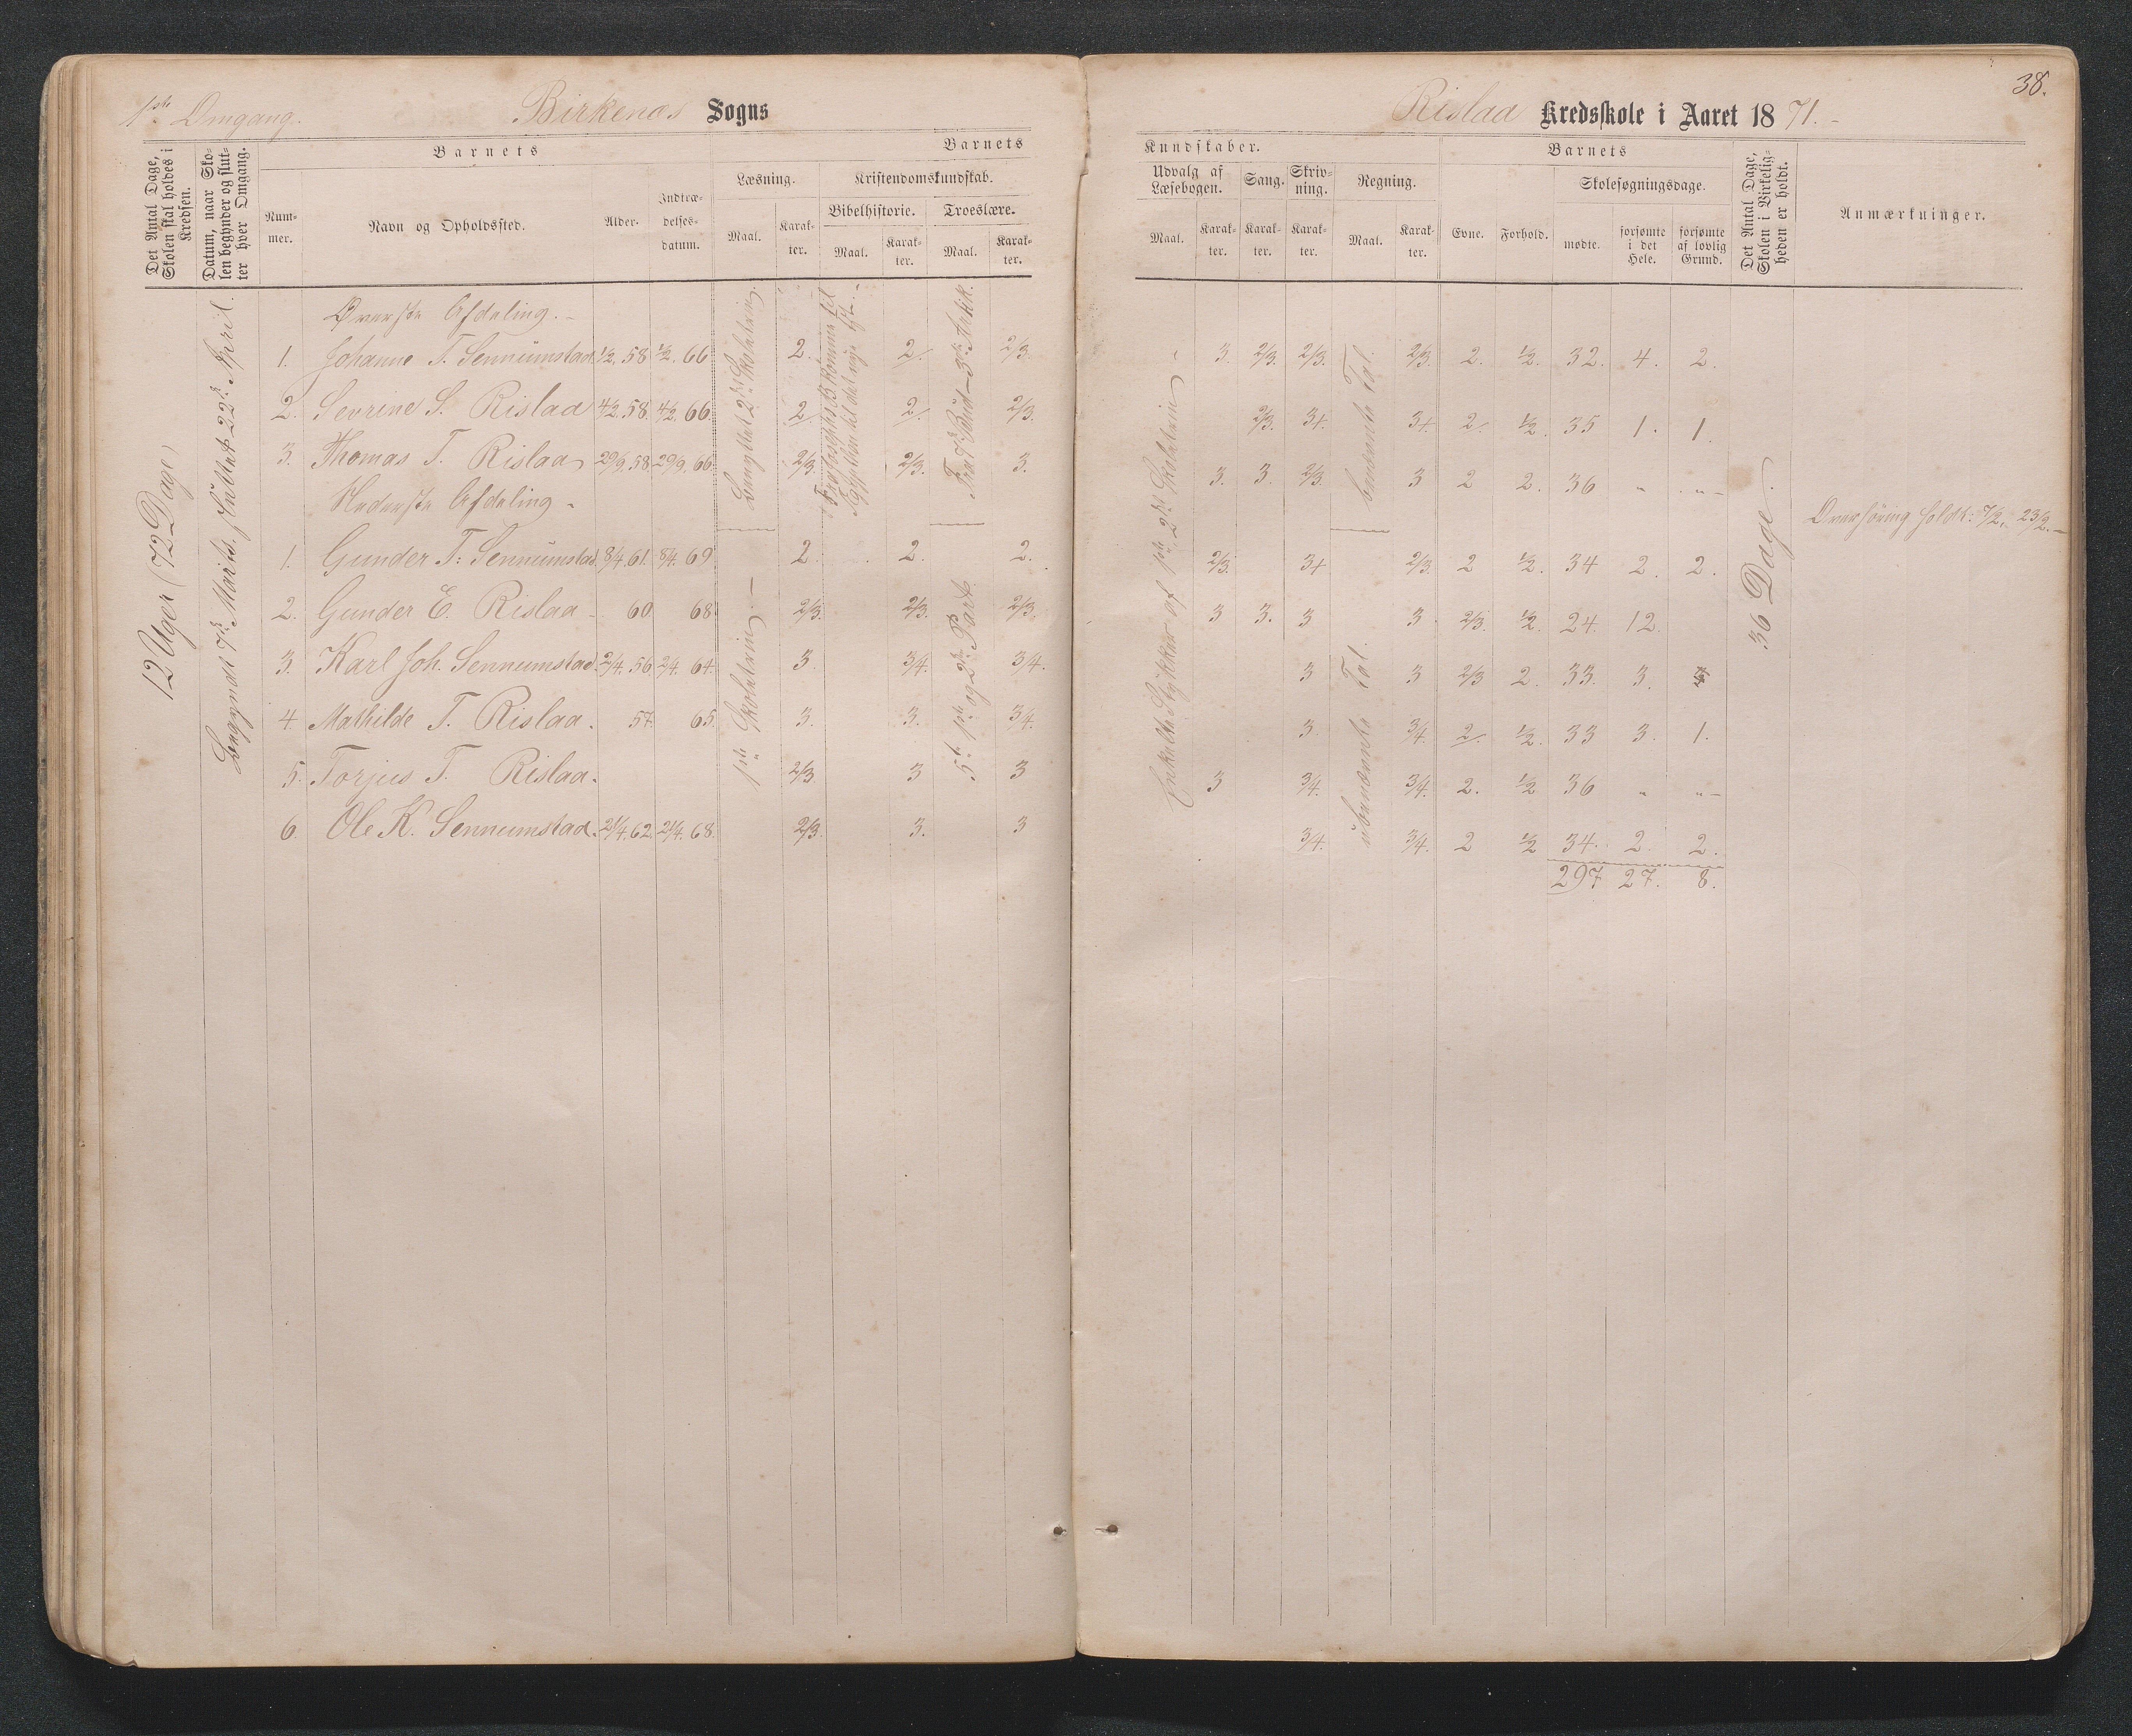 38.
1ste Omgang. Birkenæs Sogns
Rislaa Kredsskole i Aaret 1871.-
Det Antal Dage, Skolen skal holdes i Kredsen.
Datum, naar Skolen begynder og slutter hver Omgang.
Barnets
Nummer.
Navn og Opholdssted.
Alder.
Indtrædelsesdatum.
Barnets
Læsning.
Maal.
Karakter.
Kristendomskundskab.
Bibelhistorie.
Maal.
Karakter.
Troeslære.
Maal.
Karakter.
Kundskaber.
Udvalg af Læsebogen.
Maal.
Karakter.
Sang.
Karakter.
Skrivning.
Karakter.
Regning.
Maal.
Karakter.
Barnets
Evne.
Forhold.
Skolesøgningsdage.
mødte.
forsømte i det Hele.
forsømte af lovlig Grund.
Det Antal Dage, Skolen i Virkeligheden er holdt.
Anmærkninger.
12 Uger (72 Dage)
Begyndt 7de Marts, sluttet 22de April.
Øverste Afdeling.-
1. Johanne T. Sennumstad 1/2.58 1/2.66 2. 2. 2/3. 3. 2/3. 2/3. 2/3. 2. 1/2. 32. 4. 2.
2. Sevrine S. Rislaa 4/2.58. 4/2.66 2. 2. 2/3. 2/3. 3+. 3+ 2. 1/2. 35 1. 1.
3. Thomas T. Rislaa 29/9.58 29/9.66. 2/3. 2/3. 3. 3. 3. 2/3. 3 2 2. 36 " "
Nederste Afdeling-
1. Gunder T: Sennumstad. 8/4.61. 8/4.69 2 2. 2. 2/3. 3+ 2/3. 2 1/2. 34 2. 2.
2. Gunder E. Rislaa - 60 68. 2/3. 2/3. 2/3. 3 3. 3 3. 2/3. 1/2. 24. 12.
3. Karl Joh. Sennumstad. 2/4.56 2/4.64. 3. 3/4. 3/4. 3 3 2/3 2. 33. 3.
4. Mathilde T. Rislaa. 57. 65. 3. 3. 3/4. 3 3/4. 2. 1/2. 33 3. 1.
5. Torjus T. Rislaa. 2/3 3 3 3 3/4. 3/4. 2. 1/2 36 " "
6. Ole K. Sennumstad. 21/4.62. 21/4.68. 2/3. 3. 3 3/4. 3/4. 2 1/2 34. 2. 2.
297 27. 8.
2det Skoletrin.
1ste Skoletrin.-
3die Artik.
5t: 1ste og 2den Part.
Enkelte Stykker af 1ste, 2det Skoletrin-
benævnte Tal.
ubenævnte Tal.
36 Dage.
Overhøring holdt: 7/2, 23/2.-